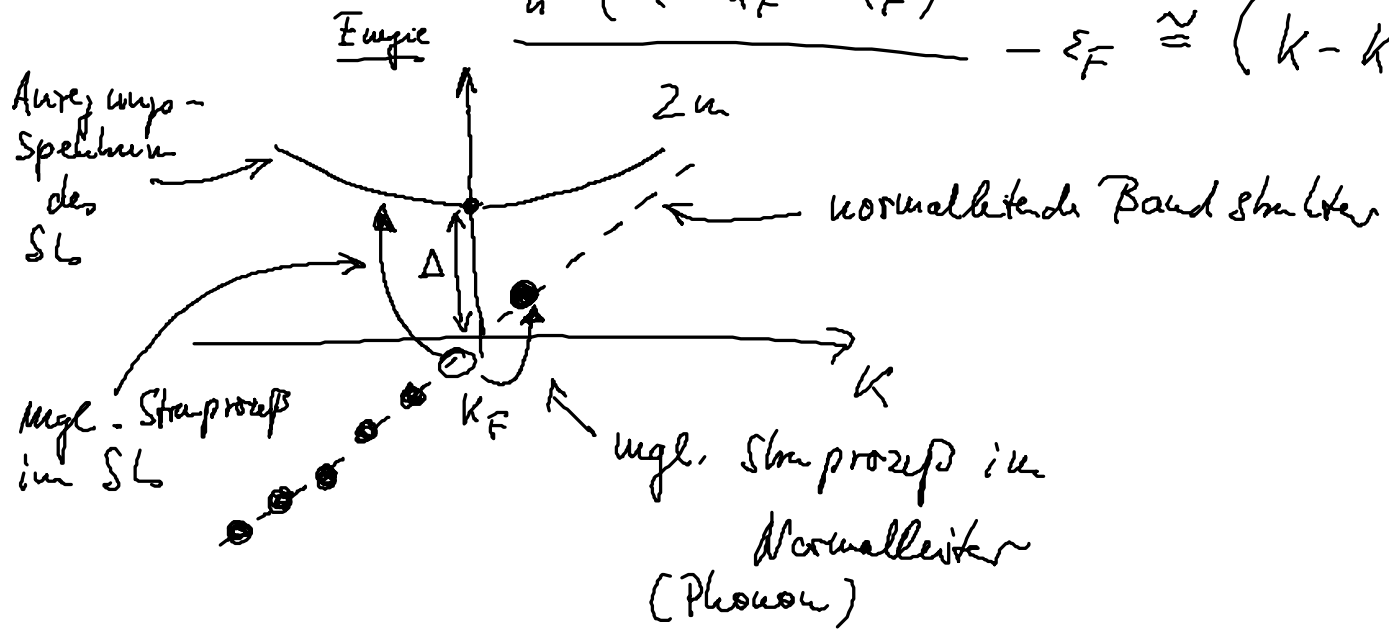 − ε_F ≅ ( K − K
2m
Energie
Anregungs-
Spektrum
des
SL
normalleitende Bandstruktur
Δ
K
K_F
mgl. Streuprozeß
im SL
mgl. Streuprozeß im
Normalleiter
(Phonon)